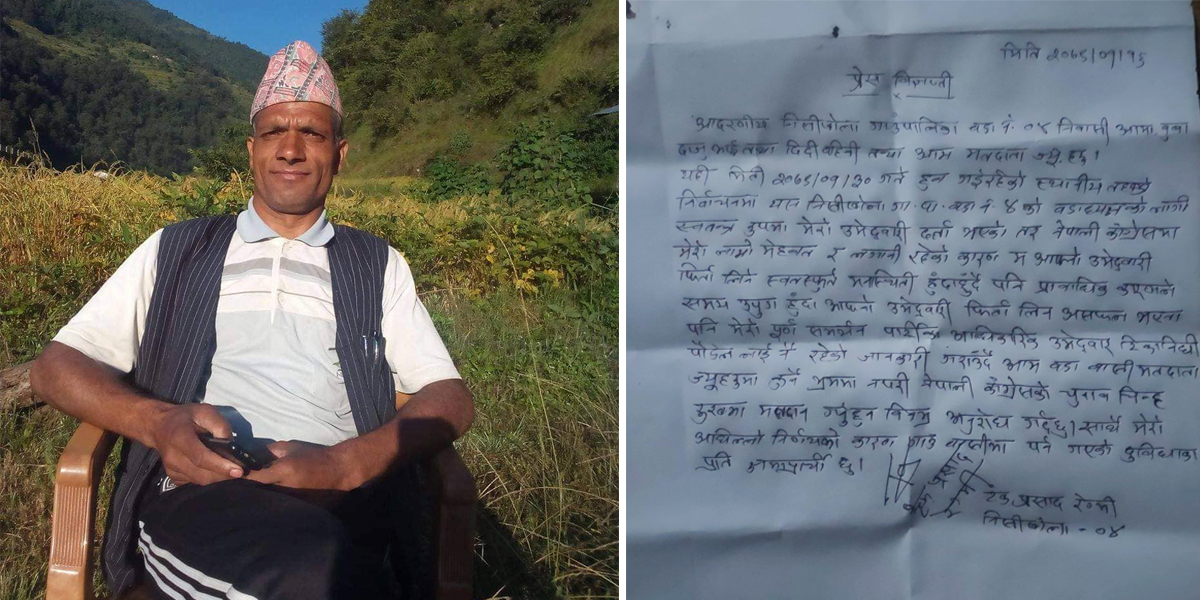 मिति २०७९/०१/१६
प्रेस विज्ञप्ती
आदरणीय निसीखोला गाउंपालिका वडा नं. ०४ निवासी आमा, बुबा
दाजु भाई तथा दिदी बहिनी तथा आम मतदाता ज्यू हरु।
यही मिती २०७९/०१/३० गते हुन गईरहेको स्थानीय तहको
निर्वाचनमा यस निसीखोला गा. पा. वडा नं ४ को वडाध्यक्षको लागी
स्वतन्त्र रुपमा मेरो उमेद्वारी दर्ता भएको तर नेपाली कांग्रेसमा
मेरो लामो मेहनत र लगानी रहेको कारण म आफ्नो उमेद्वारी
फिर्ता लिने स्वतस्फुर्त मनस्थिती हुँदाहुँदै पनि प्राबाधिक कारणले
समय गुज्रन हुँदा आफ्नो उमेद्वारी फिर्ता लिन असफल भएता
पनि मेरो पूर्ण समर्थन पार्टीको आधिकारिक उमेद्वार टिकानिधी
पौडेल लाई नै रहेको जानकारी गराउँदै आम वडा बासी मतदाता
ज्यूहरुमा कुनै भ्रममा नपरी नेपाली कांग्रेसको चुनाव चिन्ह
रुखमा मतदान गर्नुहुन विनम्र अनुरोध गर्दछु। साथै मेरो
अघिल्लो निर्णयको कारण पर्न गएको दुविधाका
प्रति क्षमाप्रार्थी छु।
टेक प्रसाद
निसीखोला - ०४